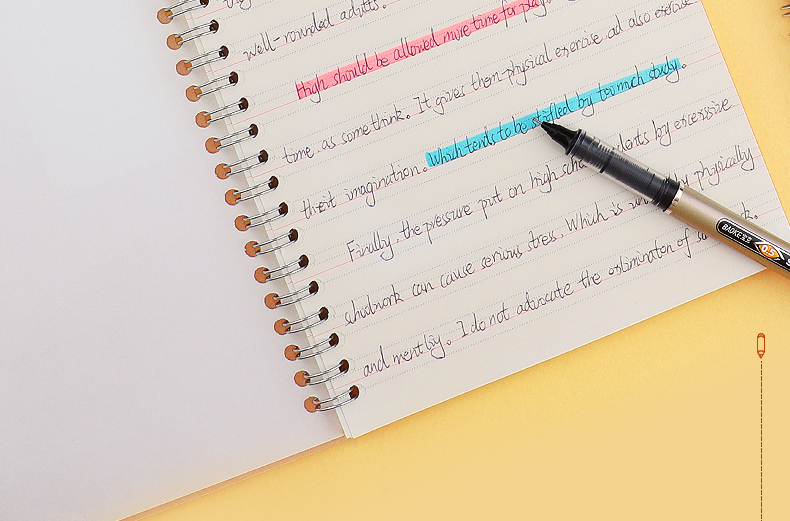 well-rounded adults.
High should be allowed more time for play
time. as some think. It gives them physical exercise ad also exercise
their imagination. Which tends to be stifled by too much study.
Finally, the pressure put on high scho dents by excessive
schoolwork can cause serious stress. Which is un by physically
and mentlly. I do not advocate the of k.
BAOKE宝克 0.5